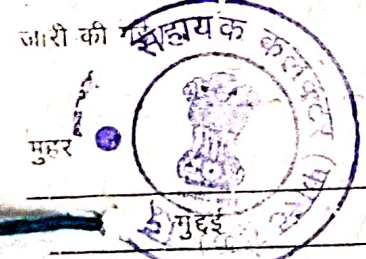 जारी की गई
सहायक कलक्टर
मुहर
मुद्दई